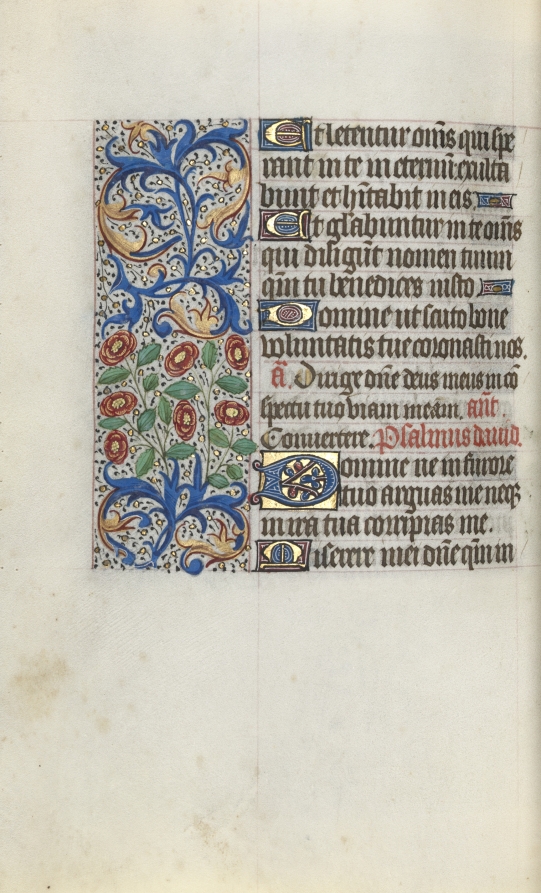 Et letentur om̄s qui spe
rant in te in eternū: exulta
bunt et hītabit in eis
Et gl̄abuntur in te om̄s
qui diligūt nomen tuum
qm̄ tu benedices iusto
Domine ut scuto bone
voluntatis tue coronasti nos.
ā. Dirige dn̄e deus meus in cō
spectu tuo viam meam. añt.
Convertere. Psalmus david.
Domine ne in furore
tuo arguas me neqꝫ
in ira tua corripias me.
Miserere mei dn̄e qm̄ in